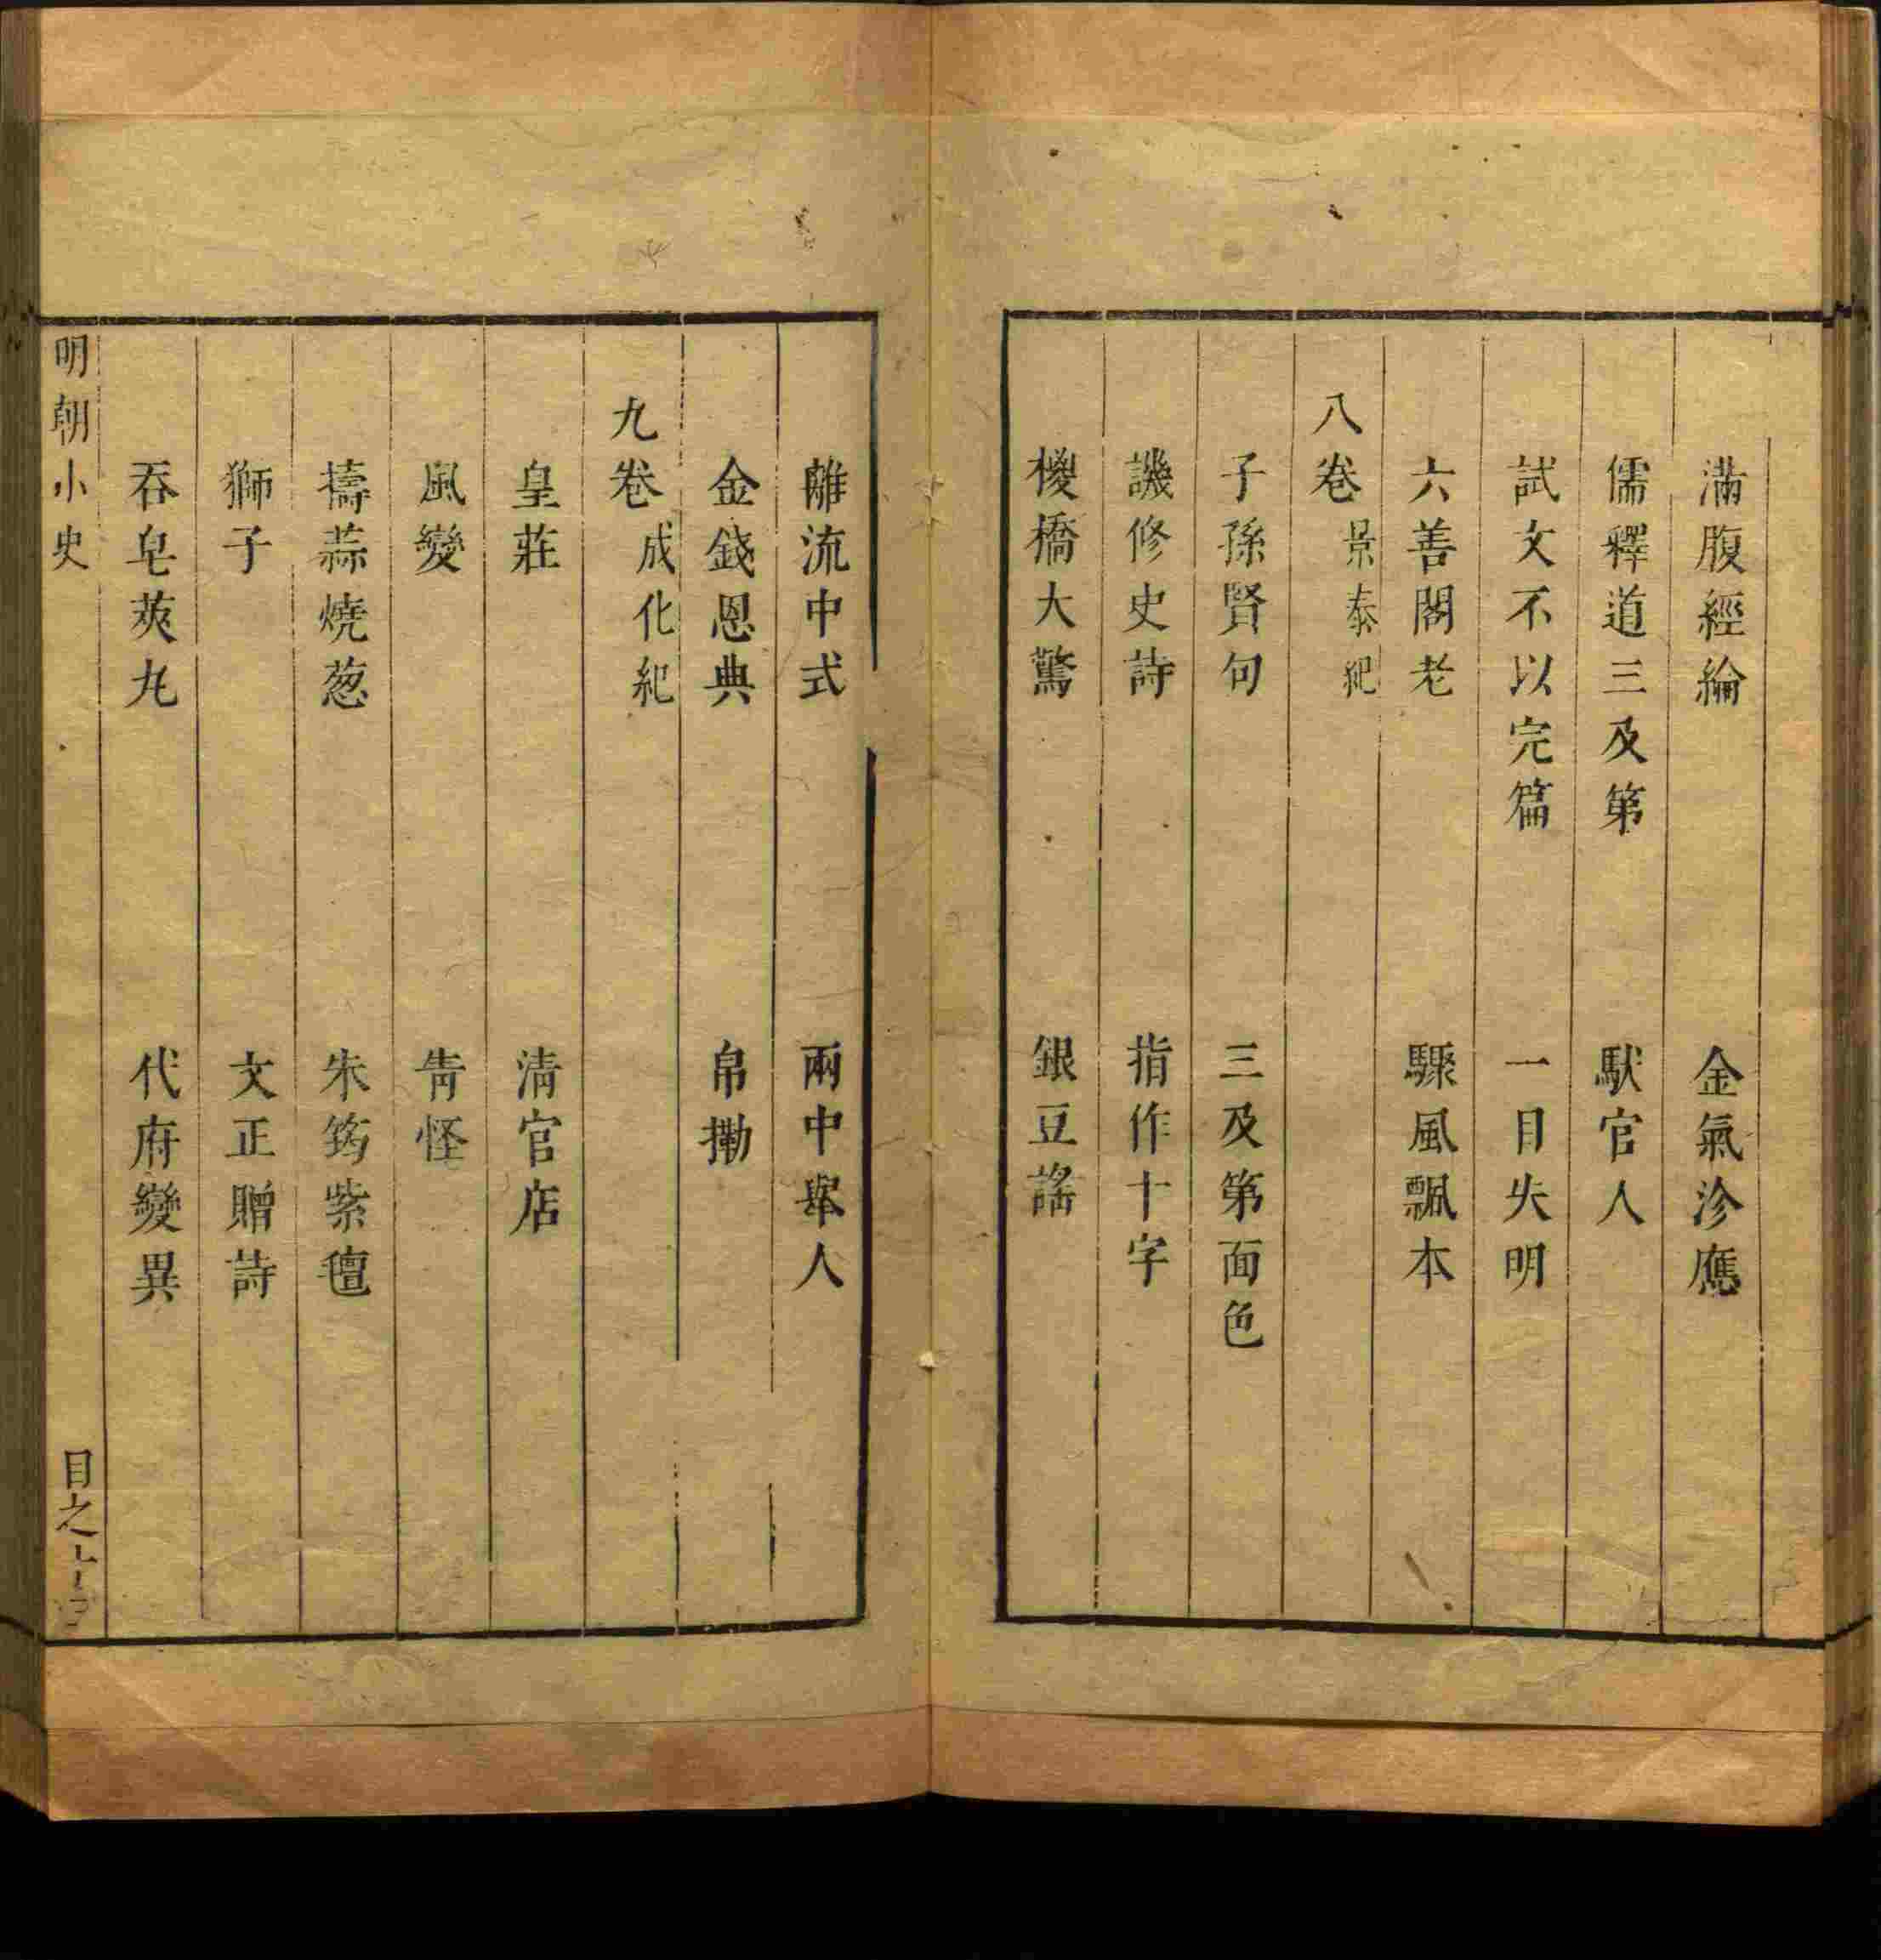 滿腹經綸　金氣沴應
儒釋道三及第　馱官人
試文不以完篇　一目失明
六善閣老　驟風飄本
八卷 景泰紀
子孫賢句　三及第面色
譏修史詩　指作十字
椶橋大驚　銀豆謠
離流中式　兩中舉人
金錢恩典　帛擻
九卷 成化紀
皇莊　淸官店
風變　靑怪
擣蒜燒葱　朱筠紫氊
獅子　文正贈詩
吞皂莢丸　代府變異
明朝小史　目之十